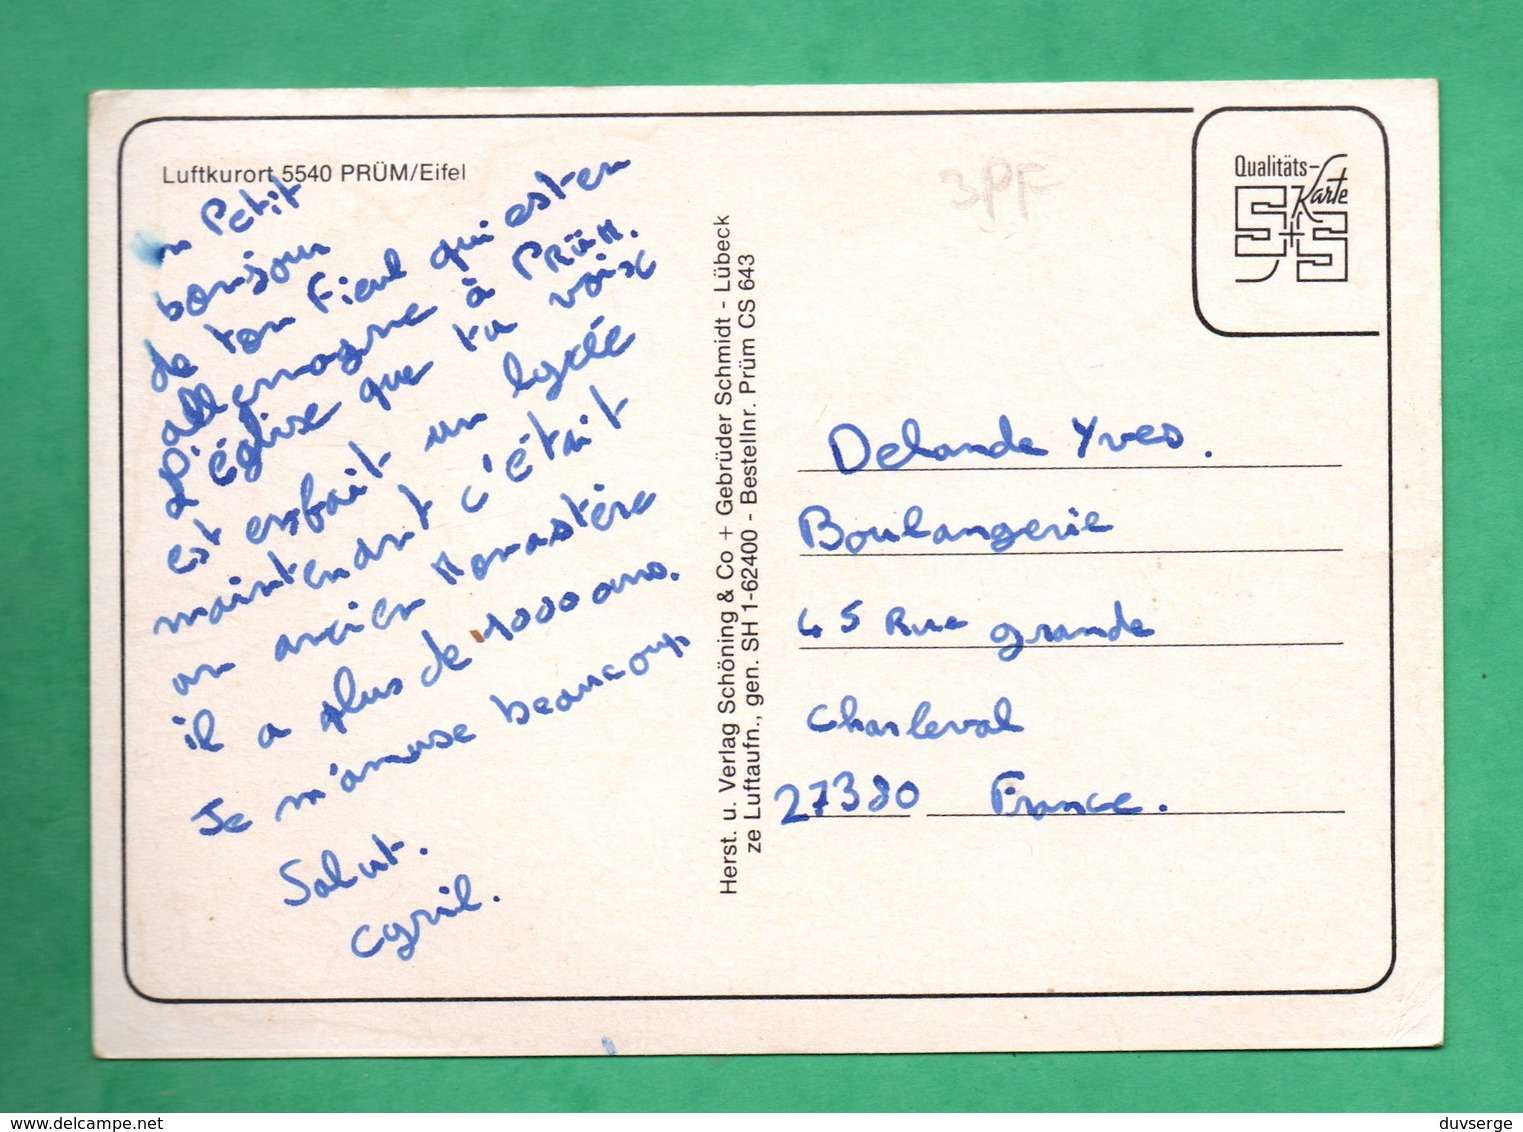 Luftkurort 5540 PRÜM/Eifel
un Petit
bonjour
de ton Fieul qui est en
allemagne à PRÜM.
L'église que tu voix
est enfait un lycée
maintenant c'était
un ancien Monastère
il a plus de 1000 ans.
Je m'amuse beaucoup
Salut.
Cyril.
Herst. u. Verlag Schöning & Co + Gebrüder Schmidt - Lübeck
ze Luftaufn., gen. SH 1-62400 - Bestellnr. Prüm CS 643
3PF
Qualitäts-
Karte
S+S
Delande Yves.
Boulangerie
45 Rue grande
Charleval
27380 France.
delcampe.net
duvserge